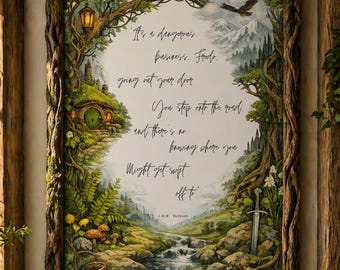 "It's a dangerous
business, Frodo,
going out your door
You step onto the road,
and there's no
knowing where you
Might get swept
off to"
J.R.R. Tolkien